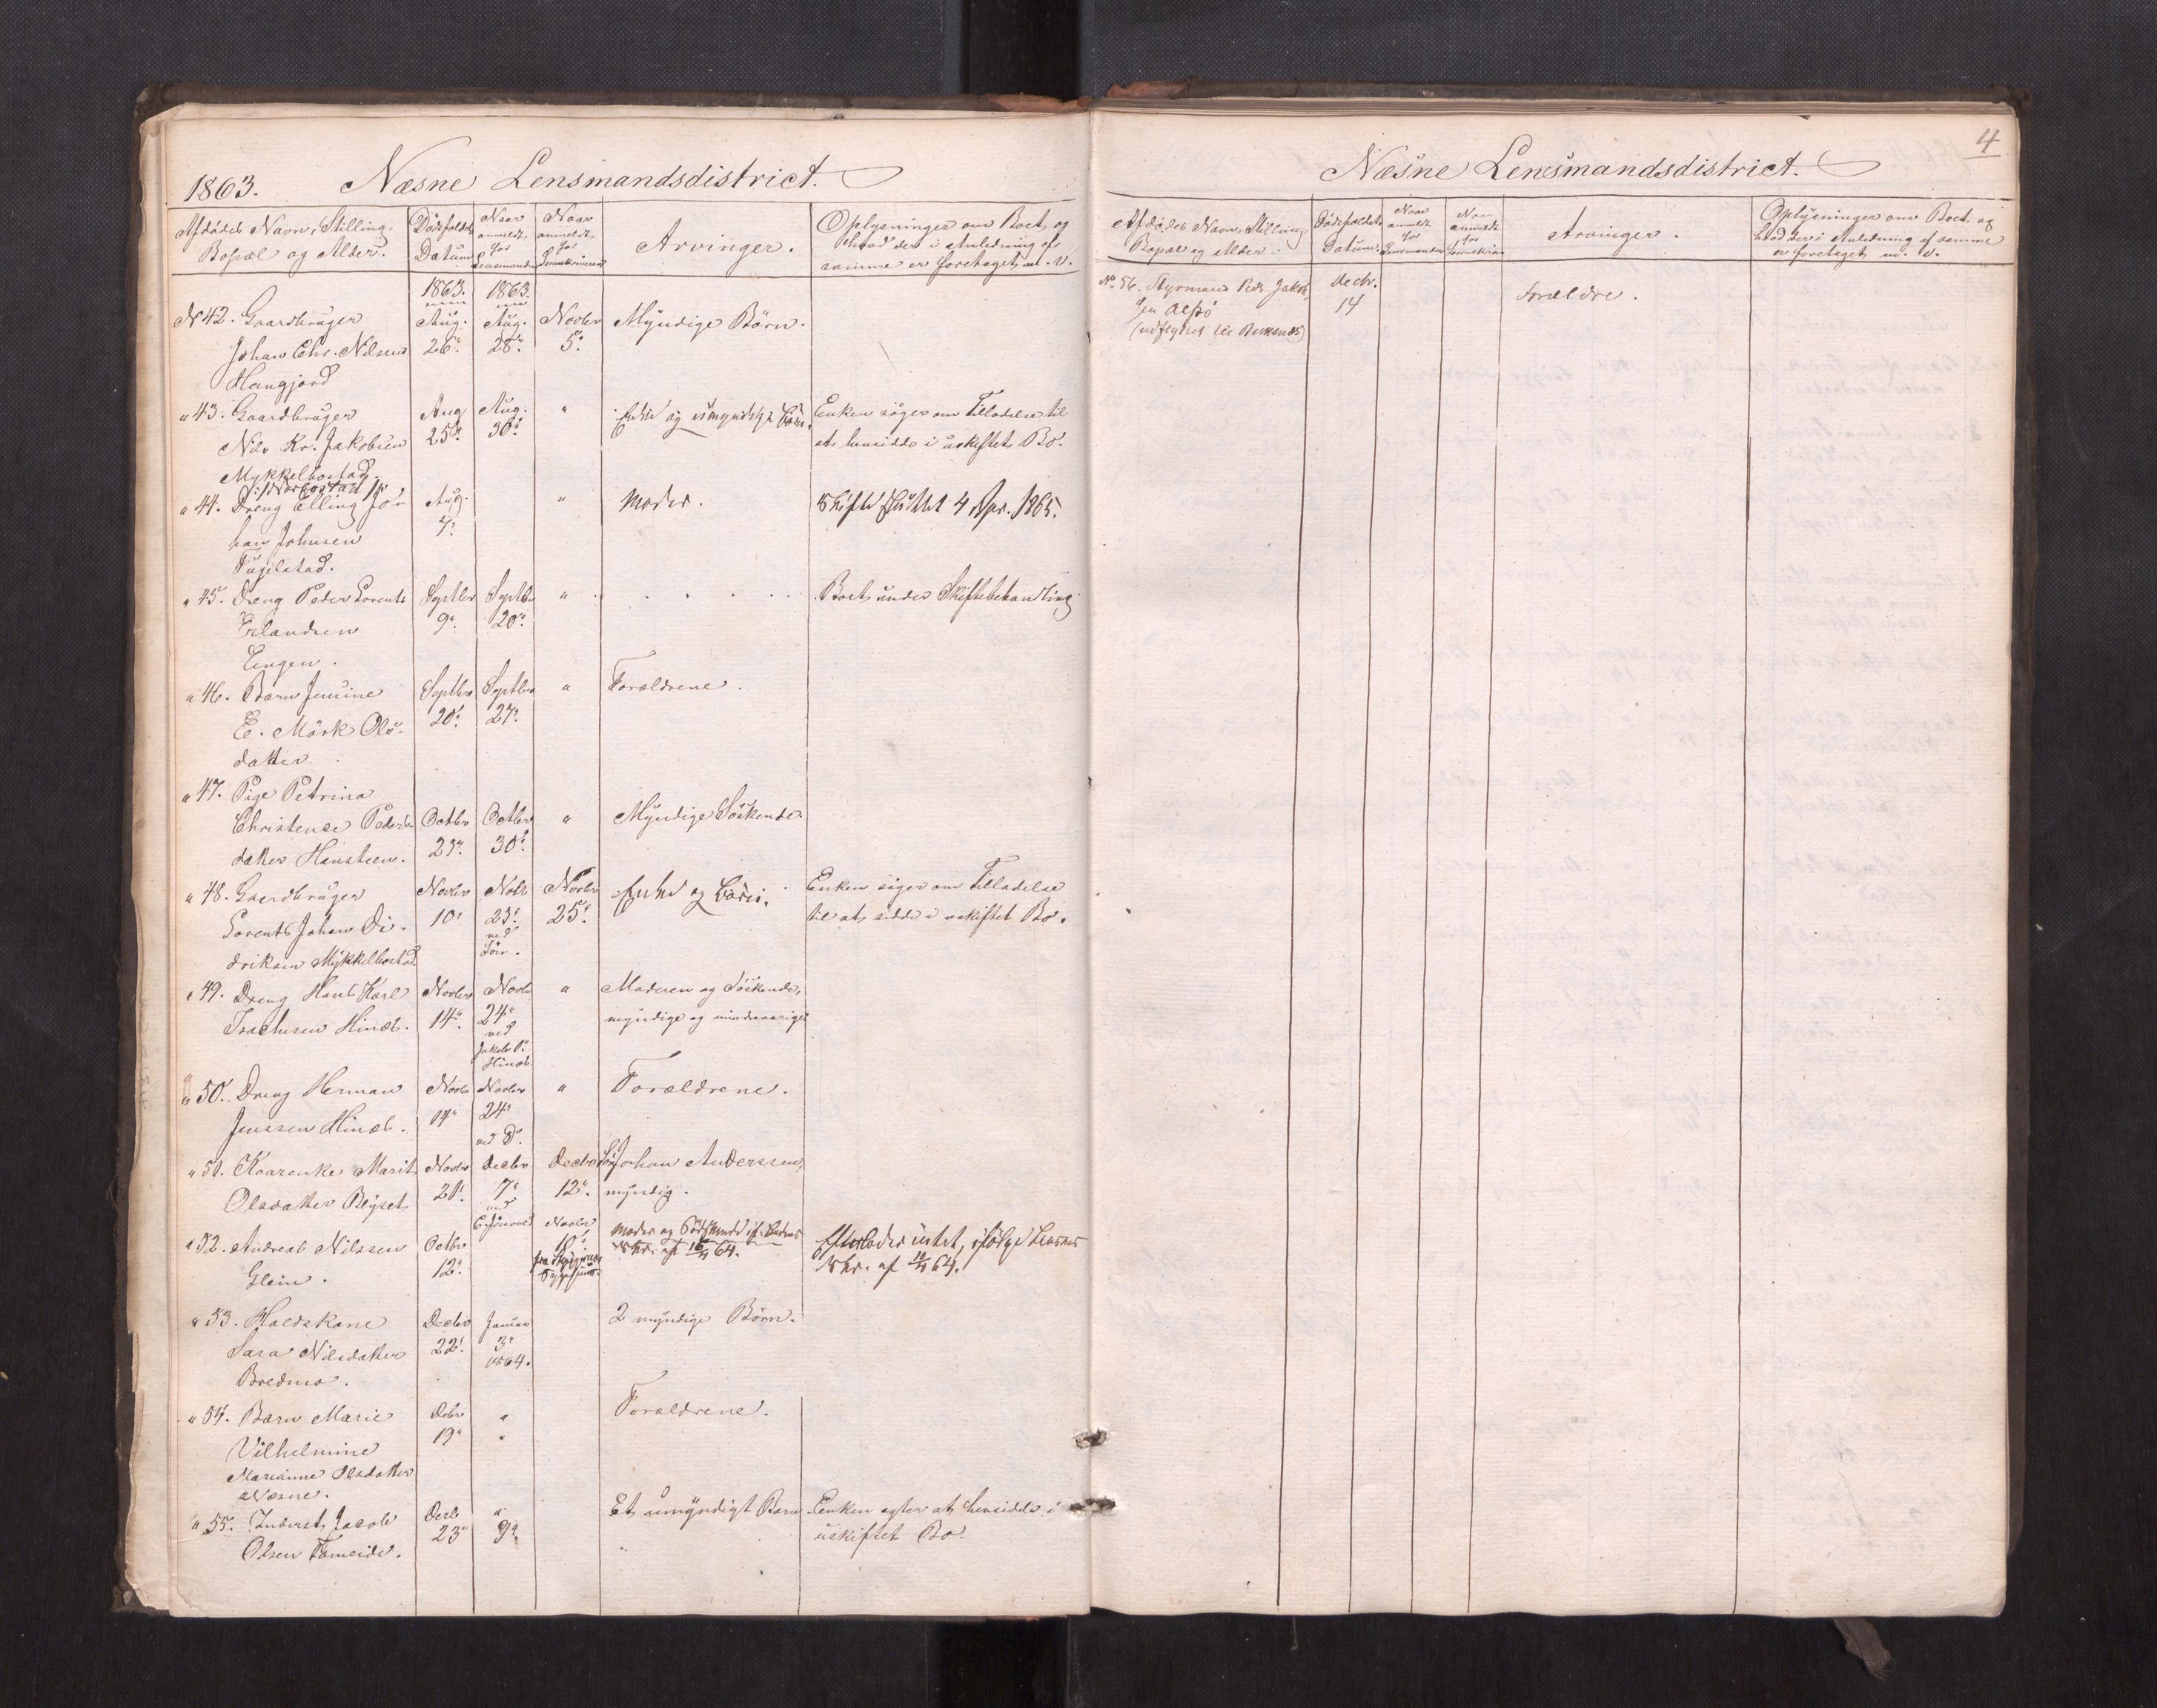 1863. Næsne Lensmandsdistrict.
Afdødes Navn, Stilling, Dödsfaldets Naar Naar Arvinger. Oplysninger om Boet og
Bopæl og Alder. Datum anmeldt for Lensmanden anmeldt for Sorenskriveren hvad der i Anledning af
samme er foretaget m. V.
1863. 1863.
No 42. Gaardbruger Aug. Aug. Novbr Myndige Börn.
Johan Chr. Nilsen 26. 28. 5.
Haugjord
" 43. Gaardbruger Aug Aug. " Enke og umyndige Börn. Enken söger om Tilladelse til
Nils Kr. Jakobsen 25. 30. at hensidde i uskiftet Bo.
Mykkelbostad.
" 44. Dreng Elling Jo- Aug. " Moder. Skifte sluttet 4 Apr. 1865.
han Johnsen 4.
Fuglstad.
" 45. Dreng Peder Lorents Septbr Septbr " Boet under Skiftebehandling
Erlandsen 9. 20.
Engen.
" 46. Barn Jensine Septbr Septbr " Forældrene.
E. Mörk Ols- 20. 27.
datter.
" 47. Pige Petrina
Christense Peders- Octbr Octbr " Myndige Söskende.
datter Hansteen. 23. 30.
" 48. Gaardbruger Novbr Novbr Novbr Enke og Börn. Enken söger om Tilladelse
Lorents Johan Di- 10. 23. 25. til at sidde i uskiftet Bo.
driksen Mykkelbostad. ved
" 49. Dreng Hans Karl Novbr Novbr " Moderen og Söskende,
Isachsen Hinæs. 14. 24. myndige og mindreaarige
ved
Jakob P.
Hinæs
" 50. Dreng Herman Novbr Novbr " Forældrene.
Jenssen Hinæs. 14. 24.
ved D.
" 51. Kaarenke Marit Novbr Decbr Decbr Johan Anderssen,
Olsdatter 21. 7. 12. myndig.
ved
" 52. Andreas Nilssen Octbr Novbr Moder og Södskende Efterlader intet, ifölge Lensm.
Glein. 12. 10. Skr. af 64. Skr. af 64.
" 53. Kaldskone Decbr Januar 2 myndige Börn.
Sara Nilsdatter 22. 3.
1864.
Bredmo.
" 54. Barn Marie Decbr " Forældrene.
Vilhelmine 19. "
Marianne Olsdatter
Næsne.
" 55. Inderst Jacob Decbr " Et umyndigt Barn Enken agter at hensidde i
Olsen Tomeide. 23. 9. uskiftet Bo.
4
Næsne Lensmandsdistrict.
Afdødes Navn, Stilling, Dödsfaldets Naar Naar Arvinger. Oplysninger om Boet og
Bopæl og Alder. Datum. anmeldt for Lensmanden anmeldt for Sorenskriver hvad der i Anledning af samme
er foretaget m. V.
No 56. Styrmand Peder Jakob- Decbr. Forældre.
sen 14
(udflyttet til